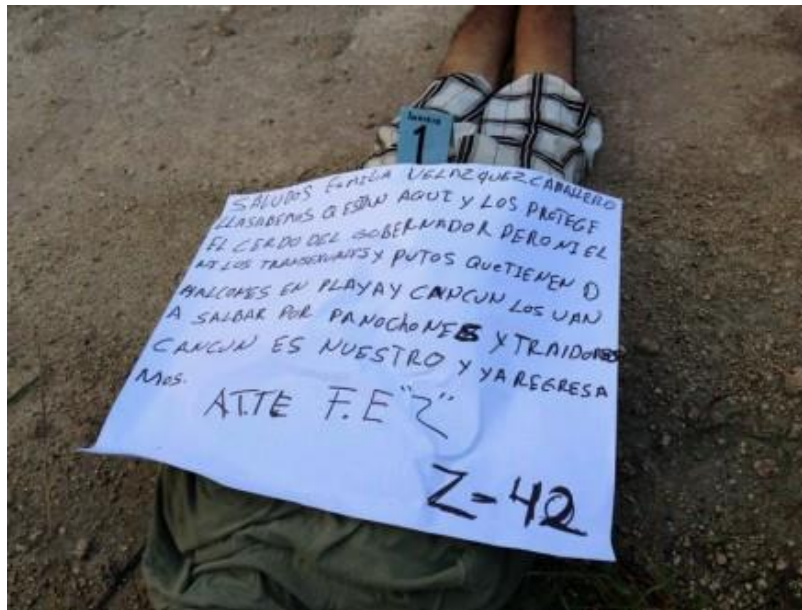 Indicio
1
SALUDOS FAMILIA VELAZQUEZ CABALLERO
LLASABEMOS Q ESTAN AQUI Y LOS PROTEGE
EL CERDO DEL GOBERNADOR PERO NI EL
NI LOS TRANSEXUALES Y PUTOS QUE TIENEN D
HALCONES EN PLAYA Y CANCUN LOS VAN
A SALBAR POR PANOCHONES Y TRAIDORES
CANCUN ES NUESTRO Y YA REGRESA
MOS.
ATTE F.E "Z"
Z-42